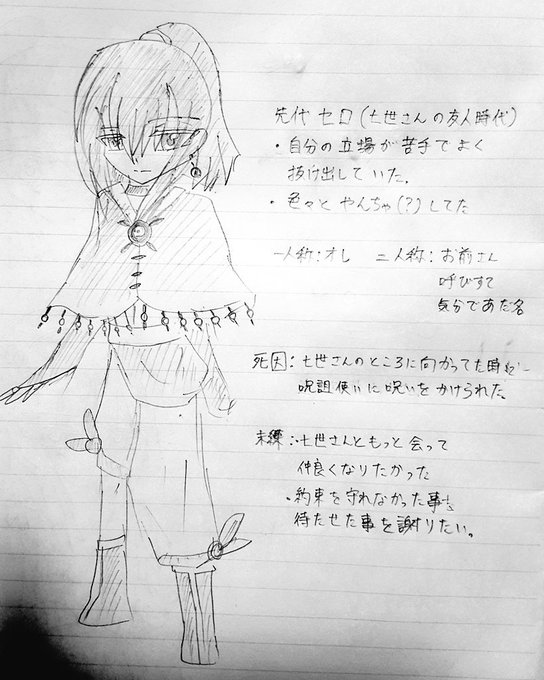 先代 セロ (七世さんの友人時代)
・自分の立場が苦手でよく
抜け出していた。
・色々と やんちゃ(?)してた
一人称:オレ 二人称:お前さん
呼びすて
気分であだ名
死因:七世さんのところに向かってた時に
呪詛使いに呪いをかけられた。
未練:・七世さんともっと会って
仲良くなりたかった
・約束を守れなかった事と
待たせた事を謝りたい。